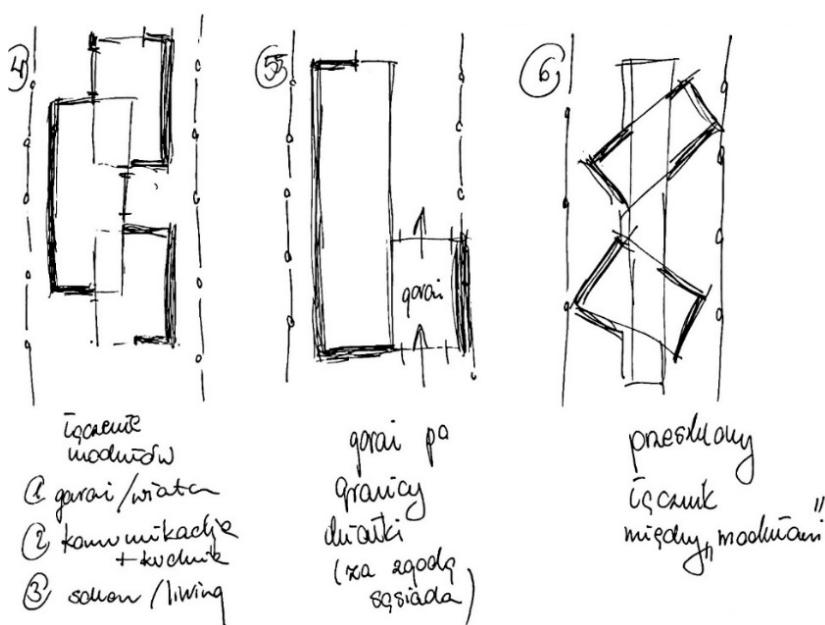 4
5
6
garaż
łączenie
modułów
1 garaż/wiata
2 komunikacja
+ kuchnia
3 salon/living
garaż po
granicy
działki
(za zgodą
sąsiada)
przeszklony
łącznik
między „modułami"